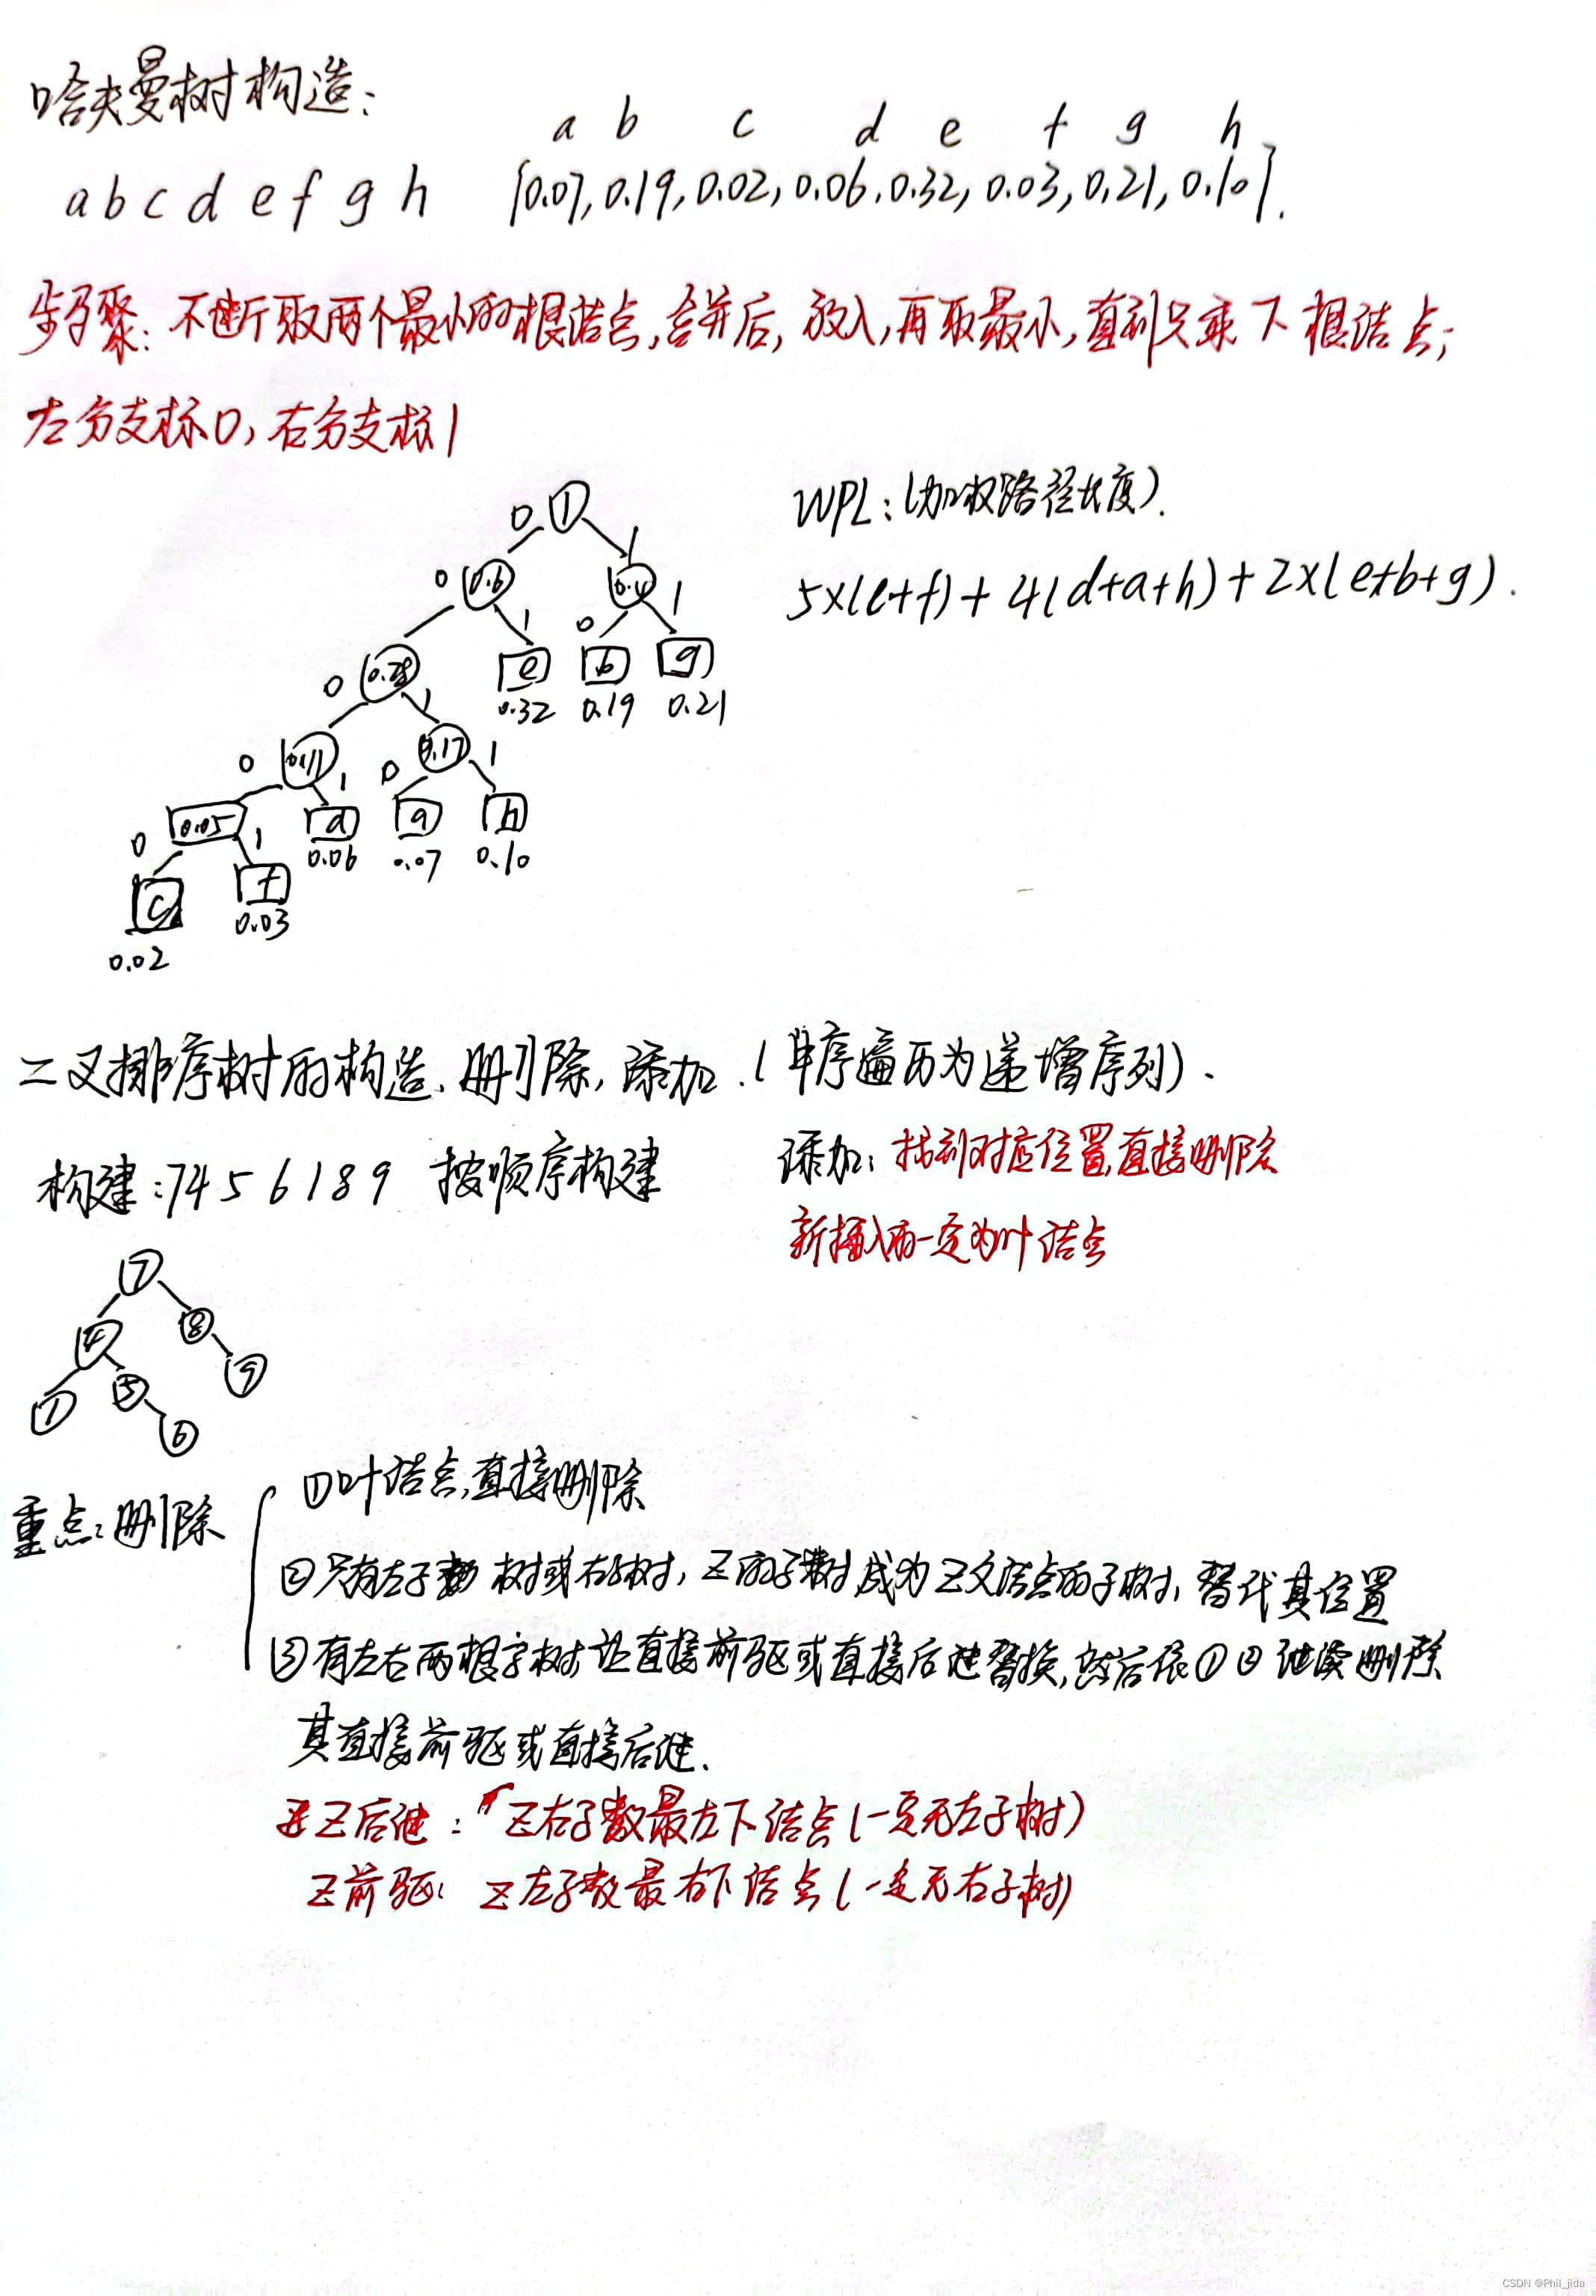 哈夫曼树构造:
a b c d e f g h
a b c d e f g h [0.07, 0.19, 0.02, 0.06, 0.32, 0.03, 0.21, 0.10].
步骤: 不断取两个最小的根结点,合并后,放入,再取最小,直到只剩下根结点;
左分支标0, 右分支标1
WPL:(加权路径长度).
5×(c+f)+4(d+a+h)+2×(e+b+g).
0 1 1
0 0.6 0.4 1
0 0.28 1 e 0 b g
0.32 0.19 0.21
0 0.11 1 0 0.17 1
0 0.05 1 d a h
0.06 0.07 0.10
c f
0.03
0.02
二叉排序树的构造、删除,添加.(中序遍历为递增序列).
构建:7 4 5 6 1 8 9 按顺序构建
添加: 找到对应位置,直接删除
新插入的一定为叶结点
7
4 8
1 5 9
6
重点:删除
①叶结点,直接删除
②只有左子树或右子树, Z的子树成为Z父结点的子树, 替代其位置
③有左右两根子树,让直接前驱或直接后继替换,然后依①②继续删除
其直接前驱或直接后继.
Z后继: Z右子数最左下结点(一定无左子树)
Z前驱: Z左子数最右下结点(一定无右子树)
CSDN @Phil_jida